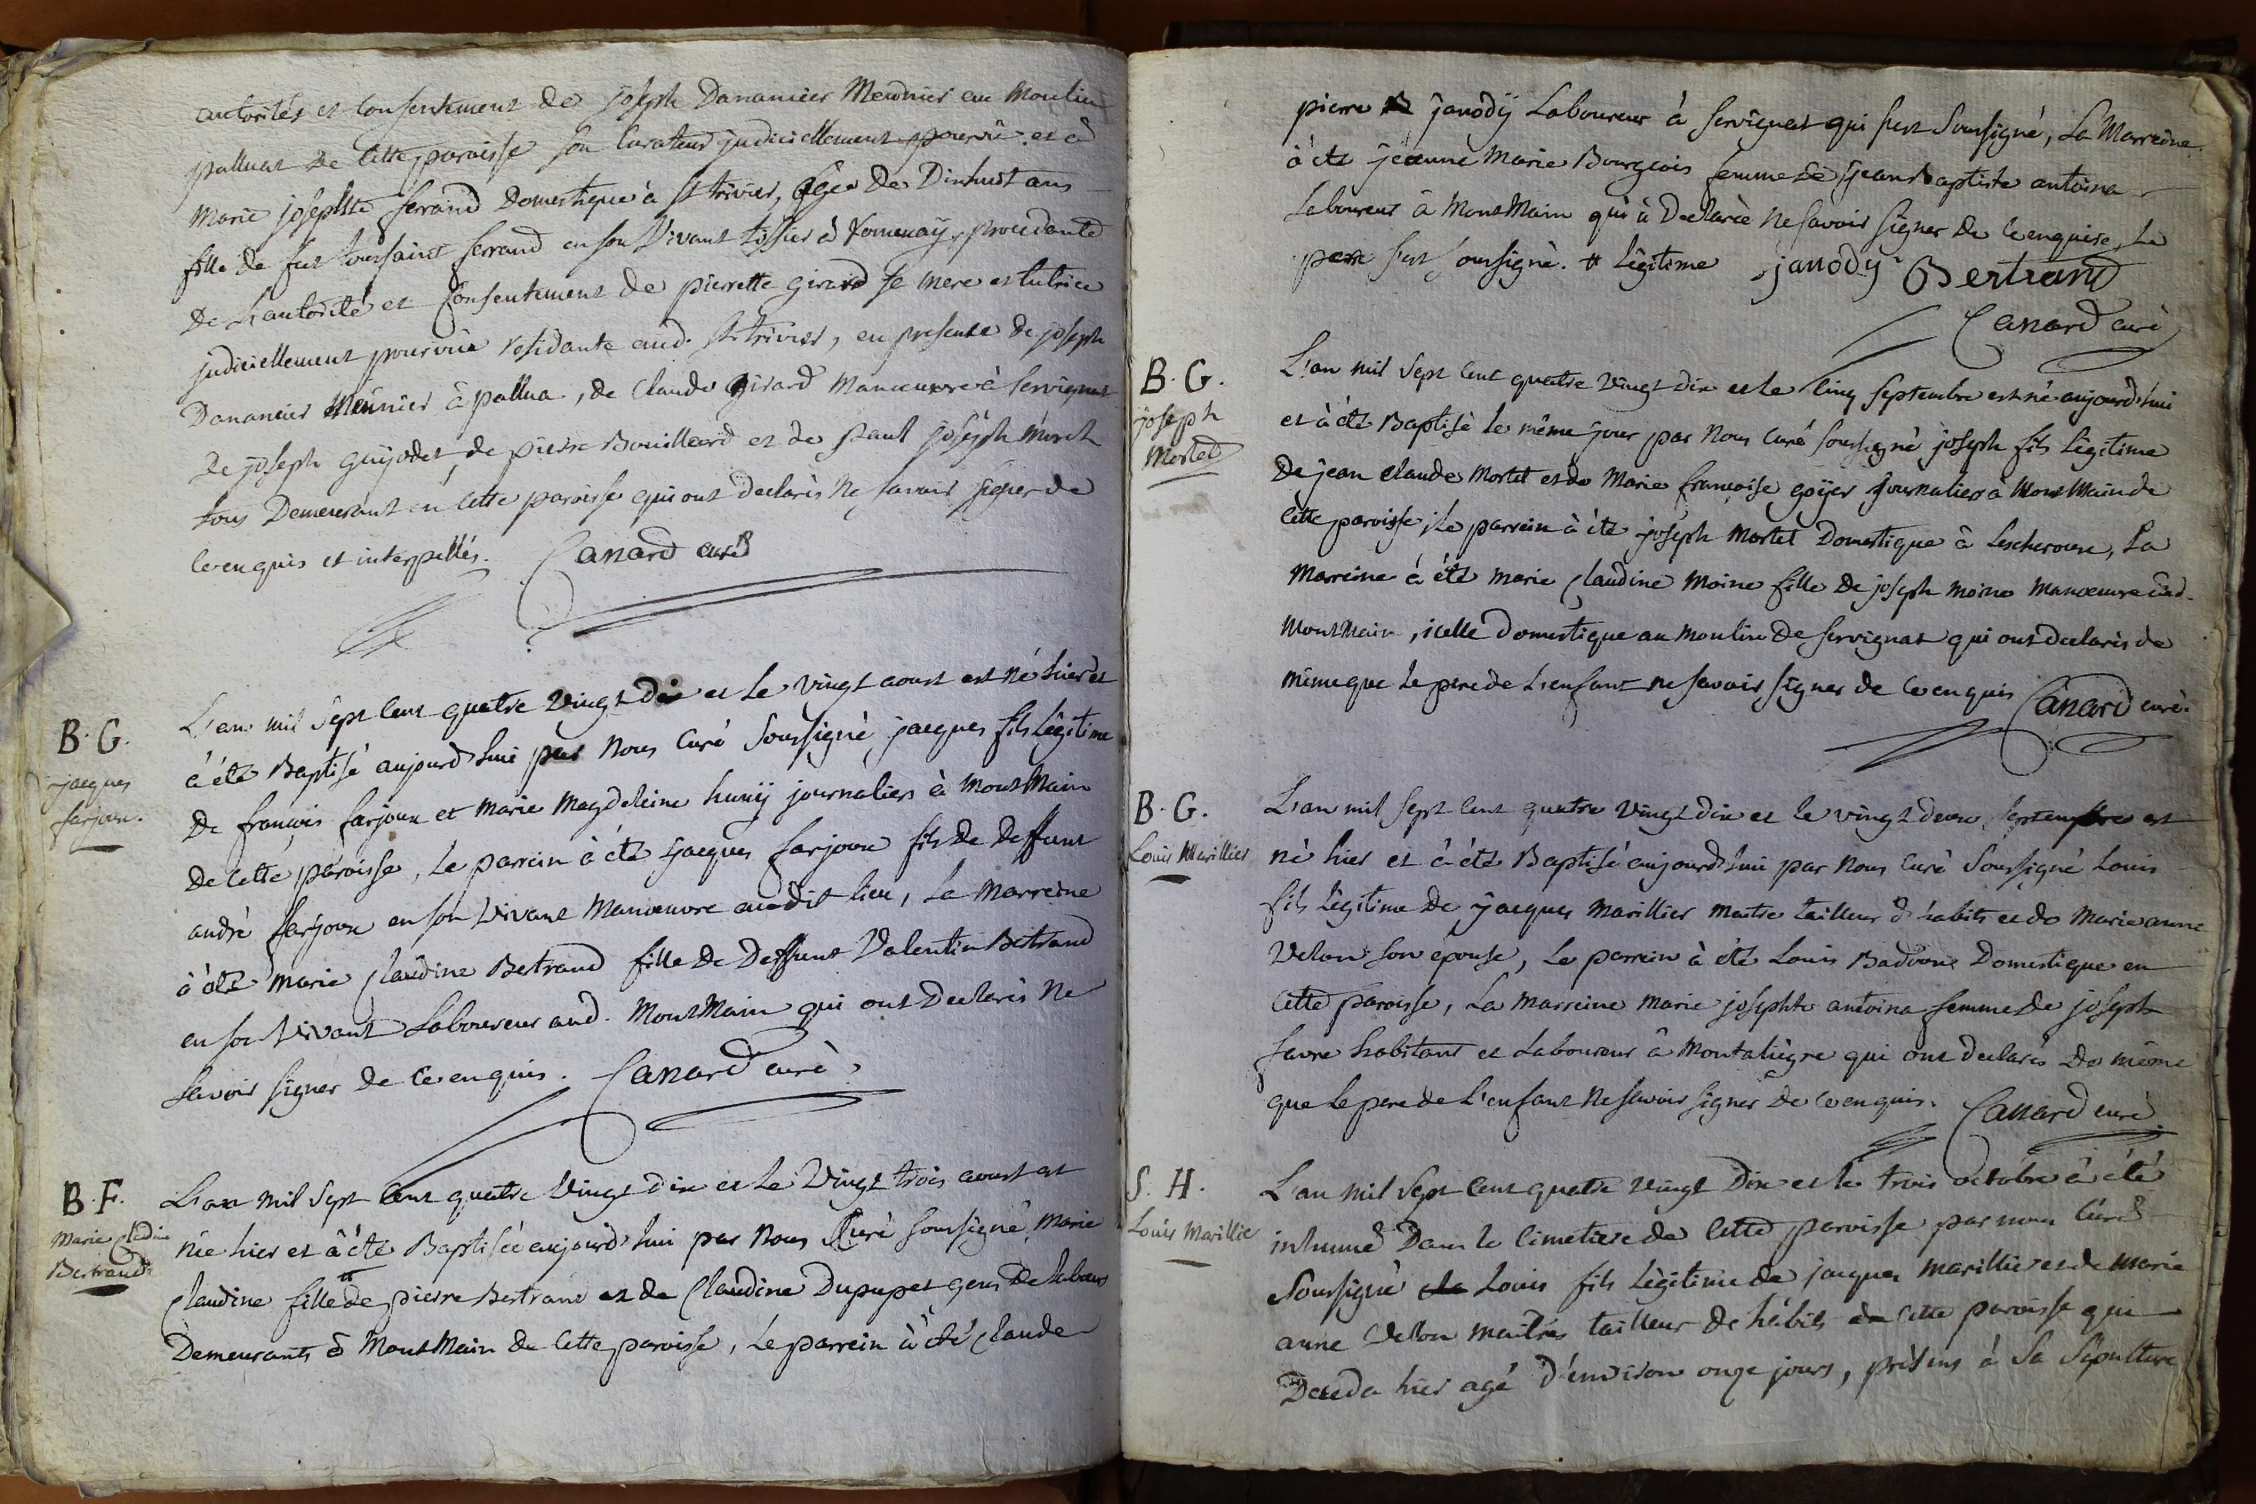 autorités et consentement de joseph Danancier Meunier au Moulin
palluat De Cette paroisse son Curateur judiciellement pourvu et à
Marie josephte ferrand Domestique à St trivier, agée De Dixhuit ans
fille de feu toussaint ferrand en son vivant tissier à procedante
De L'autorité et Consentement de pierrette girard sa mere et tutrice
judiciellement pourvüe residante aud. St trivier, en presence de joseph
Dananciér Meunier à pallua, de Claude girard Manoeuvre à Servignat
De joseph guyodet, de pierre Bouillard et de paul joseph
tous Demeurant en Cette paroisse qui ont declarés Ne savoir signer de
Ce enquis et interpellés. Canard curé
B. G.
jacques
farjoux.
L'an mil sept Cent quatre vingt Dix et Le vingt aoust est né hier et
à été Baptisé aujourd'hui par Nous Curé Soussigné jacques fils légitime
De françois farjoux et Marie Magdeleine huny journaliers à MontMain
De Cette paroisse, Le parrein à été jacques farjoux fils De Deffunt
andré farjoux en son vivant Manoeuvre audit lieu, La Marreine
à été marie Claudine Bertrand fille De Deffunt Valentin Bertrand
en son vivant Laboureur aud. MontMain qui ont Declarés Ne
savoir signer de Ce enquis. Canard curé
B. F.
Marie Cladine
Bertrand
L'an Mil sept Cent quatre vingt Dix et Le vingt trois aoust est
née hier et à été Baptisée aujourd'hui par Nous Curé soussigné, Marie
Claudine fille # de pierre Bertrand et de Claudine Dupupet gens De labeur
Demeurants à MontMain de Cette paroisse, Le parrein à été Claude
pierre janody Laboureur à servignat qui s'est soussigné, La Marreine
à été jeanne Marie Bourgeois femme de jean Baptiste antoina
Laboureur à MontMain qui à Declarée Ne savoir signer de Ce enquise, Le
pere s'est soussigné. # légitime janody Bertrand
Canard curé
B. G.
joseph
Mortel
L'an mil sept Cent quatre vingt dix et le Cinq septembre est né aujourd'hui
et à été Baptisé le même jour par Nous Curé soussigné joseph fils légitime
De jean Claude Mortel et de Marie françoise goyer journaliers à MontMain de
Cette paroisse, Le parrein à été joseph Mortel Domestique à Lescheroux, La
Marreine à été Marie Claudine Moine fille De joseph Moine Manoeuvre aud.
MontMain, icelle Domestique au Moulin De Servignat qui ont declarés de
même que le pere de L'enfant ne savoir signer de Ce enquis Canard curé
B. G.
Louis Marillier
L'an mil sept Cent quatre vingt dix et le vingt deux septembre est
né hier et à été Baptisé aujourd'hui par Nous Curé Soussigné Louis
fils légitime De jacques Marillier Maitre tailleur d'habits et de Marie anne
Velon son épouse, Le parrein à été Louis Badoux Domestique en
Cette paroisse, La Marreine Marie josephte antoina femme de joseph
favre habitant et Laboureur à Montaliegre qui ont declarés de même
que le pere de L'enfant Ne savoir signer De Ce enquis. Canard curé
S. H.
Louis Marillie
L'an mil sept Cent quatre vingt Dix et le trois octobre à été
inhumé Dans le Cimetiere de Cette paroisse par nous Curé
soussigné Louis fils légitime de jacques Marillier et de Marie
anne Velon maitres tailleur de habits de Cette paroisse qui
Deceda hier agé d'environ onze jours, présens à Sa Sépulture